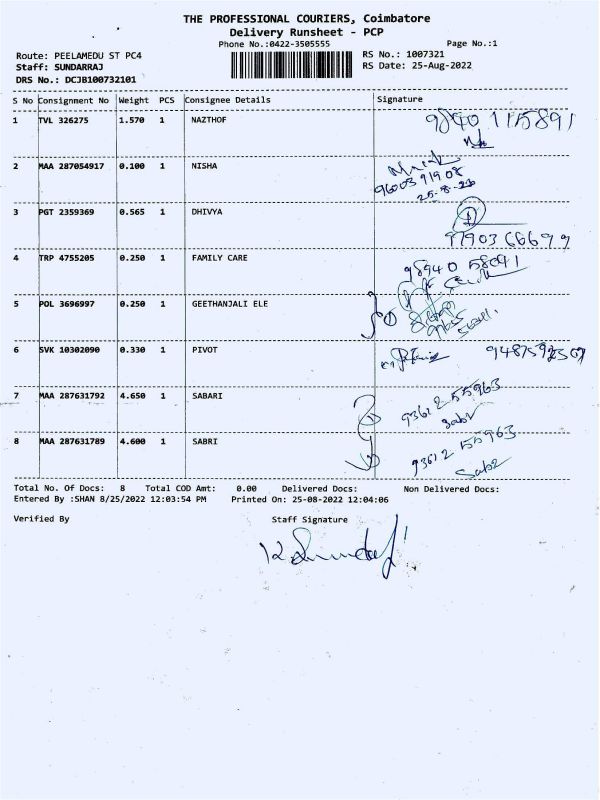 THE PROFESSIONAL COURIERS, Coimbatore
Delivery Runsheet - PCP
Phone No.:0422-3505555 Page No.:1
Route: PEELAMEDU ST PC4 RS No.: 1007321
Staff: SUNDARRAJ RS Date: 25-Aug-2022
DRS No.: DCJB100732101
S No Consignment No Weight PCS Consignee Details Signature
1 TVL 326275 1.570 1 NAZTHOF 98401 115891
2 MAA 287054917 0.100 1 NISHA
9600391908
25-8-22
3 PGT 2359369 0.565 1 DHIVYA
9790366699
4 TRP 4755205 0.250 1 FAMILY CARE 98940 58041
5 POL 3696997 0.250 1 GEETHANJALI ELE
6 SVK 10302090 0.330 1 PIVOT
7 MAA 287631792 4.650 1 SABARI 93612 55963
8 MAA 287631789 4.600 1 SABRI 93612 55963
Total No. Of Docs: 8 Total COD Amt: 0.00 Delivered Docs: Non Delivered Docs:
Entered By :SHAN 8/25/2022 12:03:54 PM Printed On: 25-08-2022 12:04:06
Verified By Staff Signature